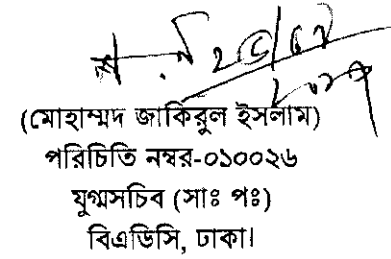 (মোহাম্মদ জাকিরুল ইসলাম)
পরিচিতি নম্বর-০১০০২৬
যুগ্মসচিব (সাঃ পঃ)
বিএডিসি, ঢাকা।